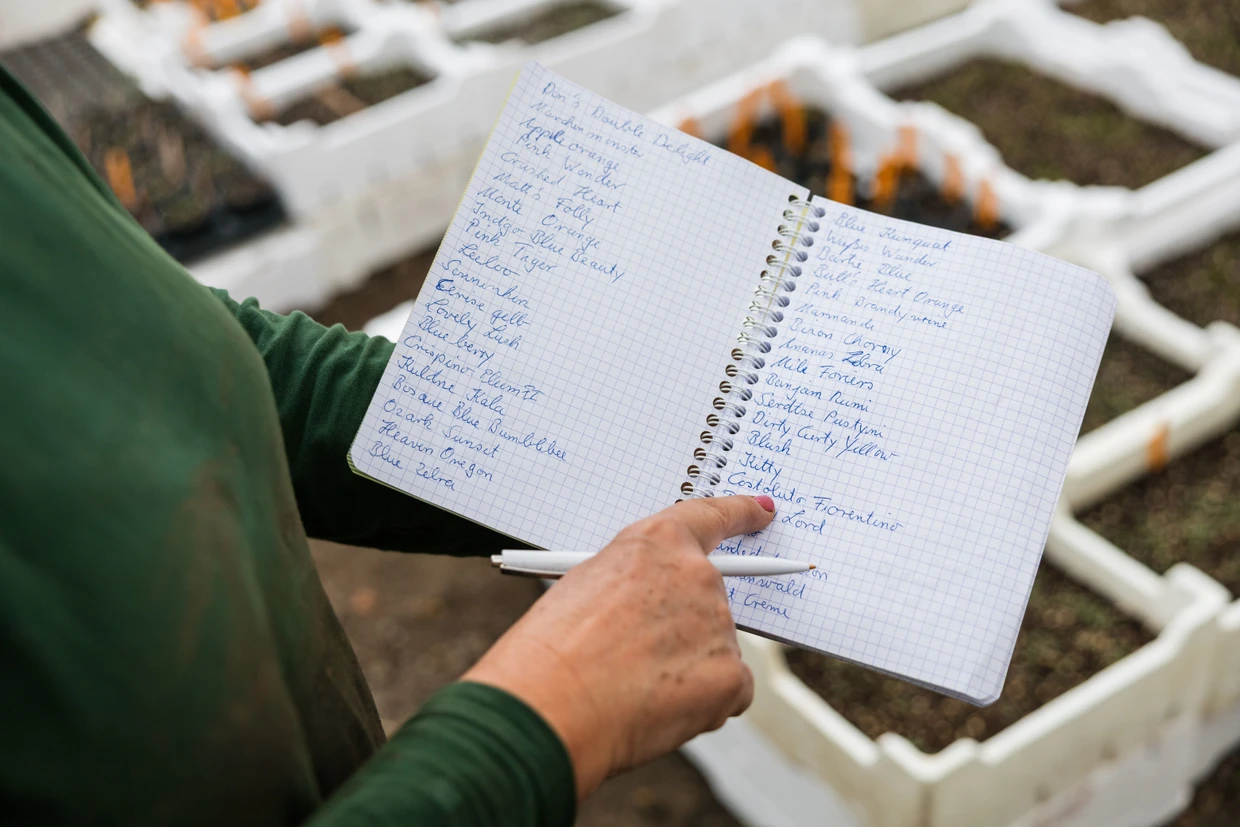 Don's Double Delight
Marcherminster
Apple orange
Pink Wonder
Crushed Heart
Matt's Folly
Monte Orange
Indigo Blue Beauty
Pink Tiger
Leeloo
Sonnenhin
Cerise gelb
Lovely Lush
Blue berry
Crispino Plum
Kuldne Kala
Bosque Blue Bumblebee
Ozark Sunset
Heaven Oregon
Blue Zebra
Blue Kumquat
Wander
Barke Blue
Bull's Heart Orange
Pink Brandywine
Marmande
Biron Chorny
Ananas Zebra
Mile Foriers
Banjam Rumi
Serdtse Pustyni
Dirty Curty Yellow
Blush
Kitty
Costoluto Fiorentino
Lord
Creme